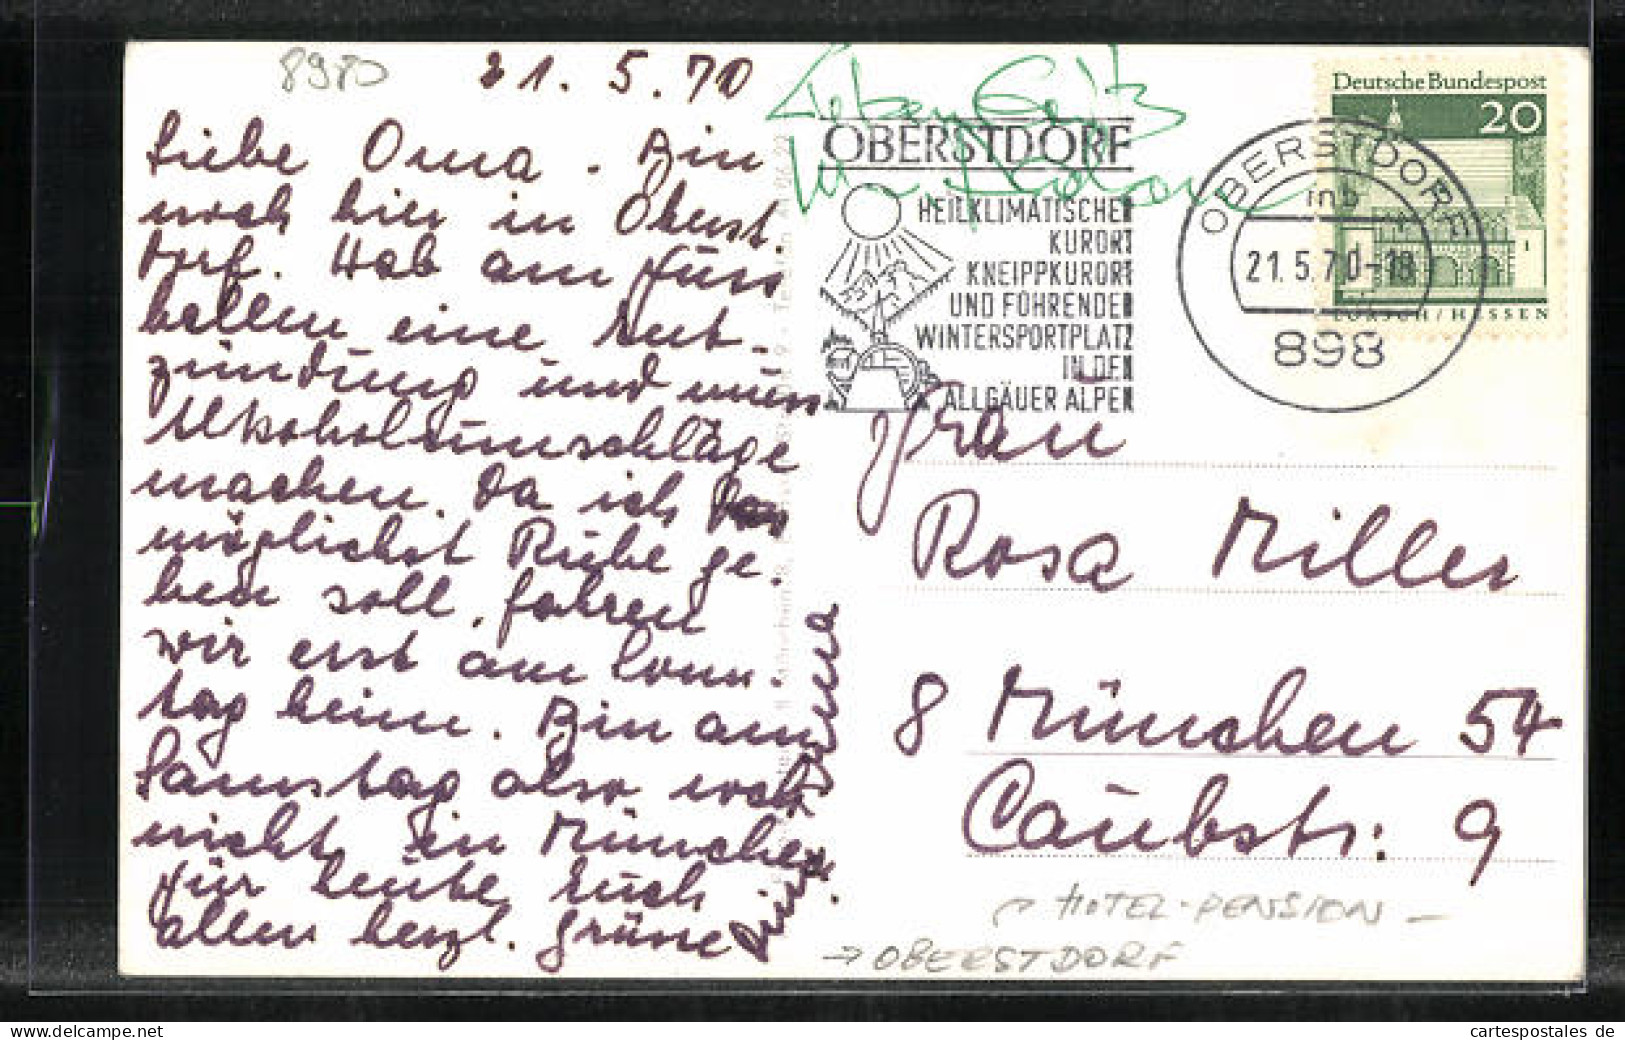 8980
21. 5. 70
Liebe Oma. Bin
noch hier in Oberst.
dorf. Hab am Fuss
ballen eine Ent-
zündung und muss
Alkoholumschläge
machen. Da ich
möglichst Ruhe ge.
ben soll, fahren
wir erst am Sonn-
tag heim. Bin am
Samstag also noch
nicht in München.
Für heute Euch
allen herzl. Grüsse
OBERSTDORF
HEILKLIMATISCHER
KURORT
KNEIPPKURORT
UND FÜHRENDER
WINTERSPORTPLATZ
IN DEN
ALLGÄUER ALPEN
OBERSTDORF
mb
21.5.70-18
898
Deutsche Bundespost
20
1
LORSCH/HESSEN
Frau
Rosa Miller
8 München 54
Caubstr: 9
→ HOTEL-PENSION -
→ OBERSTDORF
cartespostales de